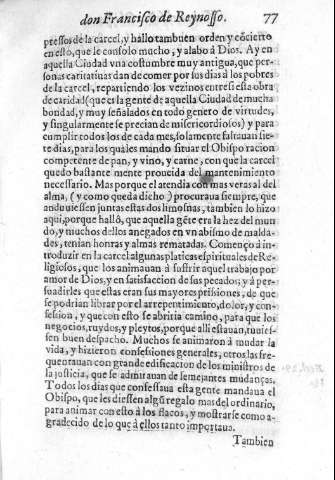 don Francisco de Reynosso. 77
pressos de la carcel, y hallo tambien orden y cōcierto
en esto, que le consolo mucho, y alabo à Dios. Ay en
aquella Ciudad vna costumbre muy antigua, que per-
sonas caritatiuas dan de comer por sus dias à los pobres
de la carcel, repartiendo los vezinos entre si esta obra
de caridad (que es la gente de aquella Ciudad de mucha
bondad, y muy señalados en todo genero de virtudes,
y singularmente se precian de misericordiosos) y para
cumplir todos los de cada mes, solamente faltauan sie-
te dias, para los quales mando situar el Obispo racion
competente de pan, y vino, y carne, con que la carcel
quedo bastante mente proueida del mantenimiento
necessario. Mas porque el atendia con mas veras al del
alma, (y como queda dicho) procuraua siempre, que
anduuiessen juntas estas dos limosnas, tambien lo hizo
aqui, porque hallò, que aquella gēte era la hez del mun
do, y muchos dellos anegados en vn abismo de malda-
des, tenian honras y almas rematadas. Començò à in-
troduzir en la carcel algunas platicas espirituales de Re-
ligiosos, que los animauan à suffrir aquel trabajo por
amor de Dios, y en satisfaccion de sus pecados; y à per-
suadirles que estas eran sus mayores prisiones, de que
se podrian librar por el arrepentimiento, dolor, y con-
fession, y que con esto se abriria camino, para que los
negocios, ruydos, y pleytos, porque alli estauan, tuuies-
sen buen despacho. Muchos se animaron à mudar la
vida, y hizieron confessiones generales, otros las fre-
quentauan con grande edificacion de los ministros de
la justicia, que se admirauan de semejantes mudanças.
Todos los dias que confessaua esta gente mandaua el
Obispo, que les diessen algū regalo mas del ordinario,
para animar con esto à los flacos, y mostrarse como a-
gradecido de lo que à ellos tanto importaua.
Tambien